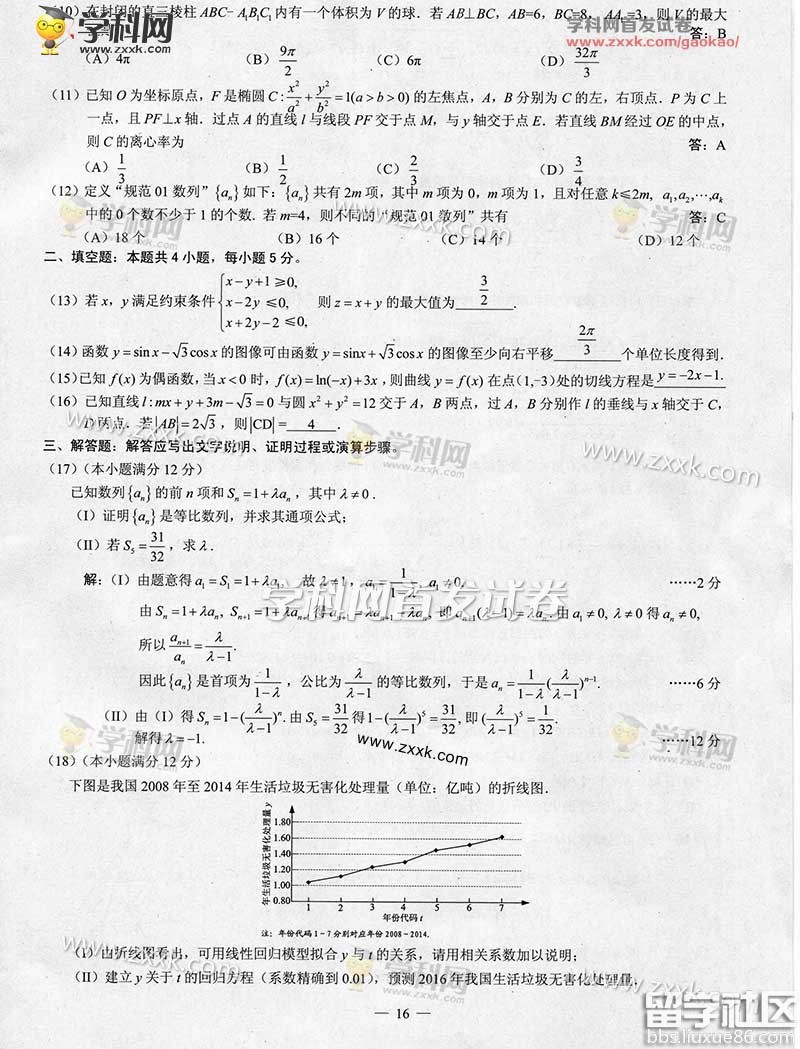 (10) 在封闭的直三棱柱 ABC- A₁B₁C₁ 内有一个体积为 V 的球．若 AB⊥BC，AB=6，BC=8，AA₁=3，则 V 的最大
答：B
(A) 4π (B) 9π/2 (C) 6π (D) 32π/3
学科网
www.zxxk.com
学科网首发试卷
www.zxxk.com/gaokao/
(11) 已知 O 为坐标原点，F 是椭圆 C : x²/a² + y²/b² = 1(a > b > 0) 的左焦点，A，B 分别为 C 的左，右顶点．P 为 C 上
一点，且 PF⊥x 轴．过点 A 的直线 l 与线段 PF 交于点 M，与 y 轴交于点 E．若直线 BM 经过 OE 的中点，
则 C 的离心率为 答：A
(A) 1/3 (B) 1/2 (C) 2/3 (D) 3/4
(12) 定义“规范 01 数列”{aₙ} 如下：{aₙ} 共有 2m 项，其中 m 项为 0，m 项为 1，且对任意 k≤2m，a₁,a₂,⋯,aₖ
中的 0 个数不少于 1 的个数. 若 m=4，则不同的“规范 01 数列”共有 答：C
(A) 18 个 (B) 16 个 (C) 14 个 (D) 12 个
二、填空题：本题共 4 小题，每小题 5 分。
(13) 若 x，y 满足约束条件 { x − y + 1 ≥ 0, x − 2y ≤ 0, x + 2y − 2 ≤ 0, 则 z = x + y 的最大值为 3/2 .
(14) 函数 y = sin x − √3 cos x 的图像可由函数 y = sin x + √3 cos x 的图像至少向右平移 2π/3 个单位长度得到.
(15) 已知 f(x) 为偶函数，当 x < 0 时，f(x) = ln(−x) + 3x，则曲线 y = f(x) 在点(1,-3)处的切线方程是 y = −2x − 1.
(16) 已知直线 l : mx + y + 3m − √3 = 0 与圆 x² + y² = 12 交于 A，B 两点，过 A，B 分别作 l 的垂线与 x 轴交于 C，
D 两点．若 |AB| = 2√3，则 |CD| = 4 .
三、解答题：解答应写出文字说明、证明过程或演算步骤。
(17)（本小题满分 12 分）
已知数列{aₙ} 的前 n 项和 Sₙ = 1 + λaₙ，其中 λ ≠ 0．
(I) 证明{aₙ} 是等比数列，并求其通项公式；
(II) 若 S₅ = 31/32，求 λ．
解：(I) 由题意得 a₁ = S₁ = 1 + λa₁，故 λ ≠ 1，a₁ = 1/(1−λ)，a₁ ≠ 0. ……2 分
由 Sₙ = 1 + λaₙ，Sₙ₊₁ = 1 + λaₙ₊₁ 得 aₙ₊₁ = λaₙ₊₁ − λaₙ，即 aₙ₊₁(λ − 1) = λaₙ. 由 a₁ ≠ 0, λ ≠ 0 得 aₙ ≠ 0,
所以 aₙ₊₁/aₙ = λ/(λ−1).
因此{aₙ} 是首项为 1/(1−λ)，公比为 λ/(λ−1) 的等比数列，于是 aₙ = 1/(1−λ) (λ/(λ−1))ⁿ⁻¹. ……6 分
(II) 由 (I) 得 Sₙ = 1 − (λ/(λ−1))ⁿ. 由 S₅ = 31/32 得 1 − (λ/(λ−1))⁵ = 31/32，即 (λ/(λ−1))⁵ = 1/32.
解得 λ = −1. ……12 分
(18)（本小题满分 12 分）
下图是我国 2008 年至 2014 年生活垃圾无害化处理量（单位：亿吨）的折线图．
年生活垃圾无害化处理量 y
1.80
1.60
1.40
1.20
1.00
0.80
1 2 3 4 5 6 7
年份代码 t
注：年份代码 1－7 分别对应年份 2008－2014.
(I) 由折线图看出，可用线性回归模型拟合 y 与 t 的关系，请用相关系数加以说明；
(II) 建立 y 关于 t 的回归方程（系数精确到 0.01），预测 2016 年我国生活垃圾无害化处理量；
— 16 —
留学社区
bbs.liuxue86.com